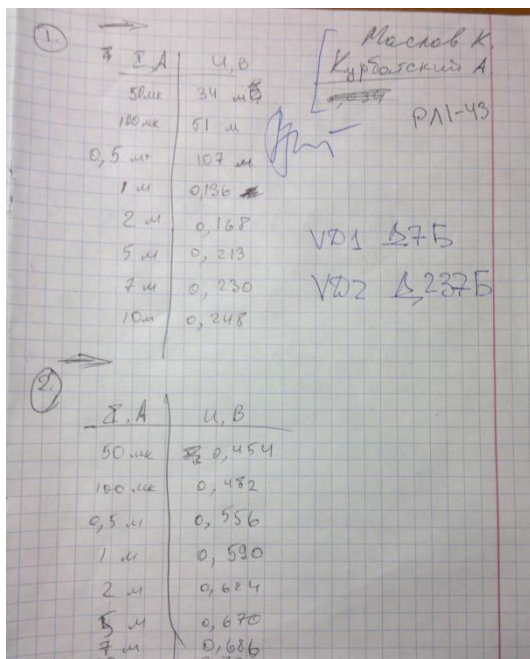 1.
I, А U, В
50мк 34 м
100мк 51 м
0,5 м 107 м
1 м 0,136
2 м 0,168
5 м 0,213
7 м 0,230
10м 0,248
Маслов К.
Курбатский А
РЛ1-43
VD1 Д7Б
VD2 Д237Б
2.
I, А U, В
50 мк 0,454
100 мк 0,482
0,5 м 0,556
1 м 0,590
2 м 0,624
5 м 0,670
7 м 0,686